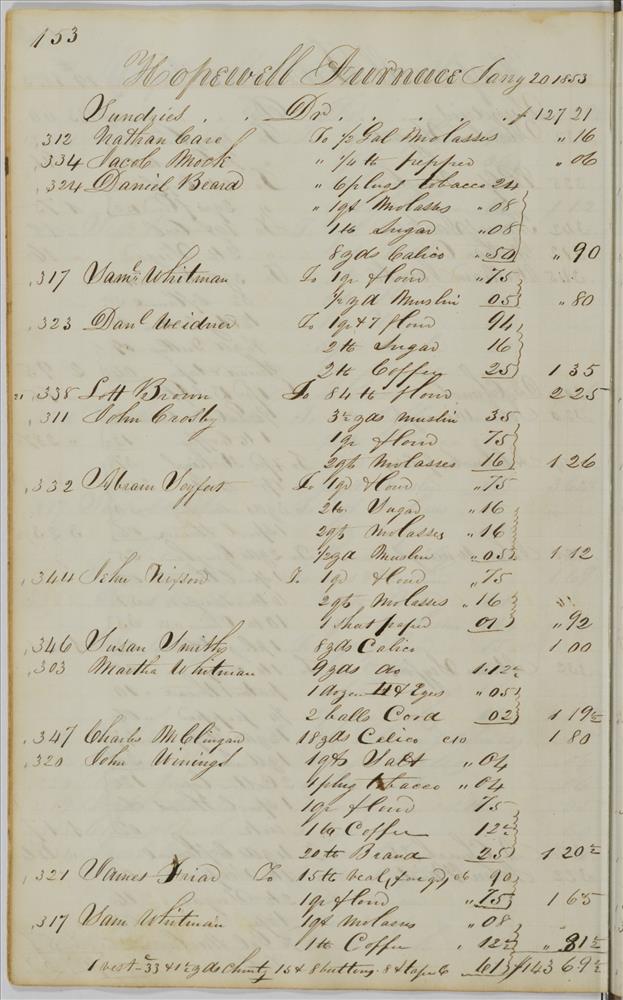 153
Hopewell Furnace Jany 20 1853
Sundries . . Dr . . . . . $ 127 21
312 Nathan Care To 1/2 Gal Molasses " 16
334 Jacob Mock " 1/4 lb pepper " 06
324 Daniel Beard " 6 plugs tobacco 24
" 1 qt Molasses " 08
1 lb Sugar " 08
8 yds Calico " 50 " 90
317 Saml Whitman To 1 qr flour " 75
1/2 yd Muslin 05 " 80
323 Danl Weidner To 1 qr & 7 flour 94
2 lb Sugar 16
2 lb Coffee 25 1 35
338 Lott Brown To 84 lb flour 2 25
311 John Crosby 3 1/2 yds muslin 35
1 qr flour 75
2 qts Molasses 16 1 26
332 Abram To 1 qr flour " 75
2 lb Sugar " 16
2 qts Molasses " 16
1/2 yd Muslin " 05 1 12
344 John Nixson To 1 qr flour " 75
2 qts Molasses " 16
1 sheet paper 01 " 92
346 Susan Smith 8 yds Calico 1 00
303 Martha Whitman 9 yds do 1.12 1/2
1 dozen H & Eyes " 05
2 balls Cord 02 1 19 1/2
347 Charles McClingan 18 yds Calico c10 1 80
320 John Winings 1 qt Salt " 04
1 plug tobacco " 04
1 qr flour 75
1 lb Coffee 12 1/2
20 lb Brand 25 1 20 1/2
321 James Friar To 15 lb veal, c6 90
1 qr flour " 75 1 65
317 Sam Whitman 1 qt Molasses " 08
1 lb Coffee " 12 1/2 " 81 1/2
1 vest 33 & 1 1/2 yds Chintz 15 & 8 buttons 8 & tape 6 61 $143 69 1/2